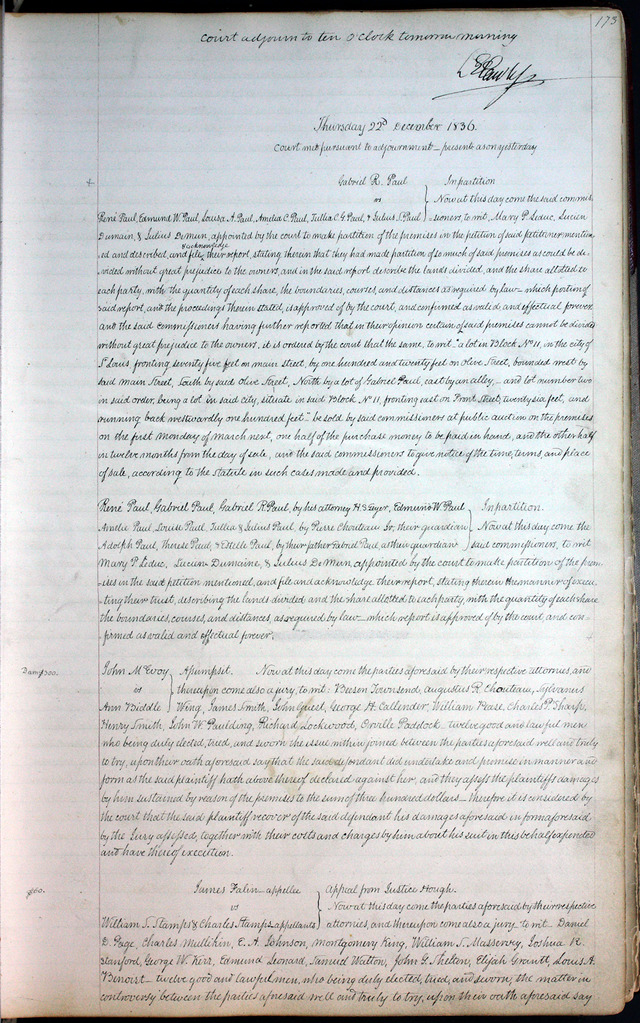 173
Court adjourn to ten o'clock tomorrow morning
Thursday 22d December 1836.
Court met pursuant to adjournment – present as on yesterday
+ Gabriel R. Paul } In partition
vs } Now at this day come the said commis-
René Paul, Edmund W. Paul, Louisa A. Paul, Amelia C. Paul, Tullia C. G. Paul, & Julius S. Paul } -sioners, to wit, Mary P. Leduc, Lucien
Dumain, & Julius Demun, appointed by the court to make partition of the premises in the petition of said petitioner mention-
& acknowledge
ed and described, and file their report, stating therein that they had made partition of so much of said premises as could be di-
vided without great prejudice to the owners, and in the said report describe the lands divided, and the share allotted to
each party, with the quantity of each share, the boundaries, courses, and distances as required by law – which portion of
said report, and the proceedings therein stated, is approved of by the court, and confirmed as valid and effectual forever.
and the said commissioners having further reported that in their opinion certain of said premises cannot be divided
without great prejudice to the owners, it is ordered by the court that the same, to wit "a lot in Block No 11, in the city of
St Louis fronting seventy five feet on main street, by one hundred and twenty feet on Olive street, bounded west by
said main Street, South by said Olive Street, North by a lot of Gabriel Paul, east by an alley, – and lot number two
in said order, being a lot in said city, situate in said Block No 11, fronting east on Front Street, twenty six feet, and
running back westwardly one hundred feet" – be sold by said commissioners at public auction on the premises
on the first Monday of March next, one half of the purchase money to be paid in hand, and the other half
in twelve months from the day of sale, and the said commissioners to give notice of the time, terms, and place
of sale, according to the statute in such cases made and provided.
René Paul, Gabriel Paul, Gabriel R. Paul, by his attorney H. S. Geyer, Edmund W. Paul } In partition.
Amelia Paul, Louise Paul, Tullia & Julius Paul, by Pierre Chouteau Jr, their guardian } Now at this day come the
Adolph Paul, Therese Paul, & Estelle Paul, by their father Gabriel Paul, as their guardian } said commissioners, to wit
Mary P. Leduc, Lucien Dumaine, & Julius De Mun, appointed by the court to make partition of the prem-
ises in the said petition mentioned, and file and acknowledge their report, stating therein the manner of execu-
ting their trust, describing the lands divided and the share allotted to each party, with the quantity of each share
the boundaries, courses, and distances, as required by law – which report is approved of by the court, and con-
firmed as valid and effectual forever.
Dam $300. John McEvoy } Assumpsit. Now at this day come the parties aforesaid by their respective attornies, and
vs } thereupon come also a jury, to wit: Beeson Townsend, Augustus R. Chouteau, Sylvanus
Ann Biddle } Wing, James Smith, John Guest, George H. Callender, William Hase, Charles P. Tharp,
Henry Smith, John W. Paulding, Richard Lockwood, Orville Paddock – twelve good and lawful men
who being duly elected, tried, and sworn the issue within joined between the parties aforesaid well and truly
to try, upon their oath aforesaid say that the said defendant did undertake and promise in manner and
form as the said plaintiff hath above thereof declared against her, and they assess the plaintiffs damages
by him sustained by reason of the premises to the sum of three hundred dollars – Therefore it is considered by
the court that the said plaintiff recover of the said defendant his damages aforesaid in form aforesaid
by the Jury assessed, together with their costs and charges by him about his suit in this behalf expended
and have thereof execution.
$60. James Falin – appellee } Appeal from Justice Hough.
vs } Now at this day come the parties aforesaid by their respective
William S. Stamps & Charles Stamps – appellants } attornies, and thereupon come also a jury to wit – Daniel
D. Page, Charles Mullikin, E. A. Johnson, Montgomery King, William S. Masservey, Joshua R.
Stanford, George W. Kerr, Edmund Leonard, Samuel Walton, John G. Shelton, Elijah Grantt, Louis A.
Benoist – twelve good and lawful men, who being duly elected, tried, and sworn, the matter in
controversy between the parties aforesaid well and truly to try, upon their oath aforesaid say